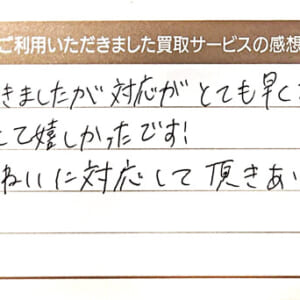 ご利用いただきました買取サービスの感想
きましたが対応がとても早く
て嬉しかったです!
ねいに対応して頂きあ